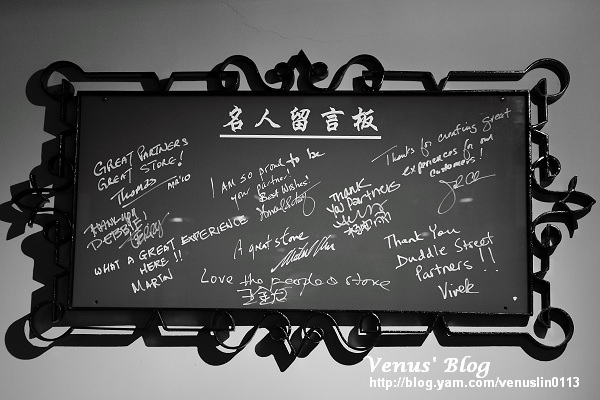 名人留言板
GREAT PARTNERS
GREAT STORE!
Thomas MAR'10
THANK YOU
DEBBIE!
WHAT A GREAT EXPERIENCE
HERE!!
MARTIN
I AM SO proud to be
your partner!
Best Wishes'
A great store
Love the people & store
王金龙
THANK
YOU PARTNERS
Thanks for creating great
experiences for our
customers!
Thank You
Duddle Street
Partners !!
Vivek
Venus' Blog
http://blog.yam.com/venuslin0113